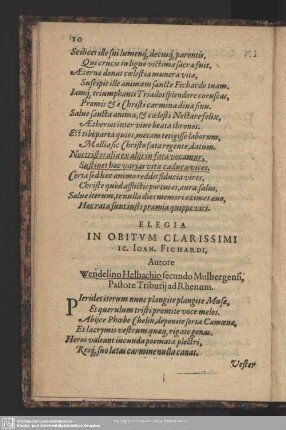 10
Scilicet ille sui lumenq́, decusq́, parentis,
Qui crucis in ligno victima sacra fuit,
Æterna donat cœlestia munera vita,
Suscipit ille animam sancte Ficharde tuam.
Iamq́, triumphantis Triados splendore coruscas,
Promis & è Christi carmina dina sinu.
Salue sancta anima, & cœlesti Nectare felix,
Ætherios inter viue beata thronos.
Est tibi parta quies, metam tetigisse laborum,
Mollia sic Christo fata regente, datum.
Nos tristes alia ex alijs in fata vocamur,
Sustinet hæc varias vita caduca vices.
Certa sed hæc animo reddis fiducia vires,
Christe quòd afflictis portus es, aura, salus,
Salue iterum, te nulla dies memori eximet æuo,
Hæc rata sunt iusti præmia quippe viri.
ELEGIA
IN OBITVM CLARISSIMI
IC. IOAN. FICHARDI,
Autore
Wendelino Helbachio secundo Mulbergensi,
Pastore Triburij ad Rhenum.
PIerides iterum nunc plangite plangite Musæ,
Et querulum tristi promite voce melos.
Abijce Phœbe Chelin, deponite serta Camœnæ,
Et lacrymis vestrum quæq; rigate genas.
Heroi valeant incunda poemata plectri,
Resq́, suo latas carmine nulla canat.
Vester